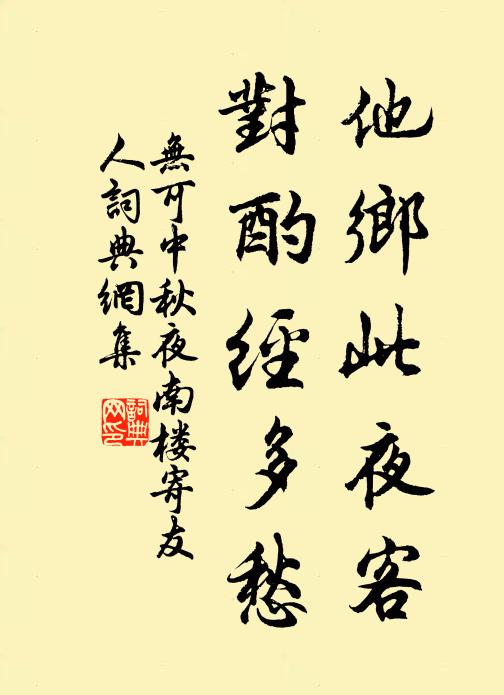 他鄉此夜客
對酌經多愁
無可中秋夜南楼寄友
人詞典網集
詞典
网印